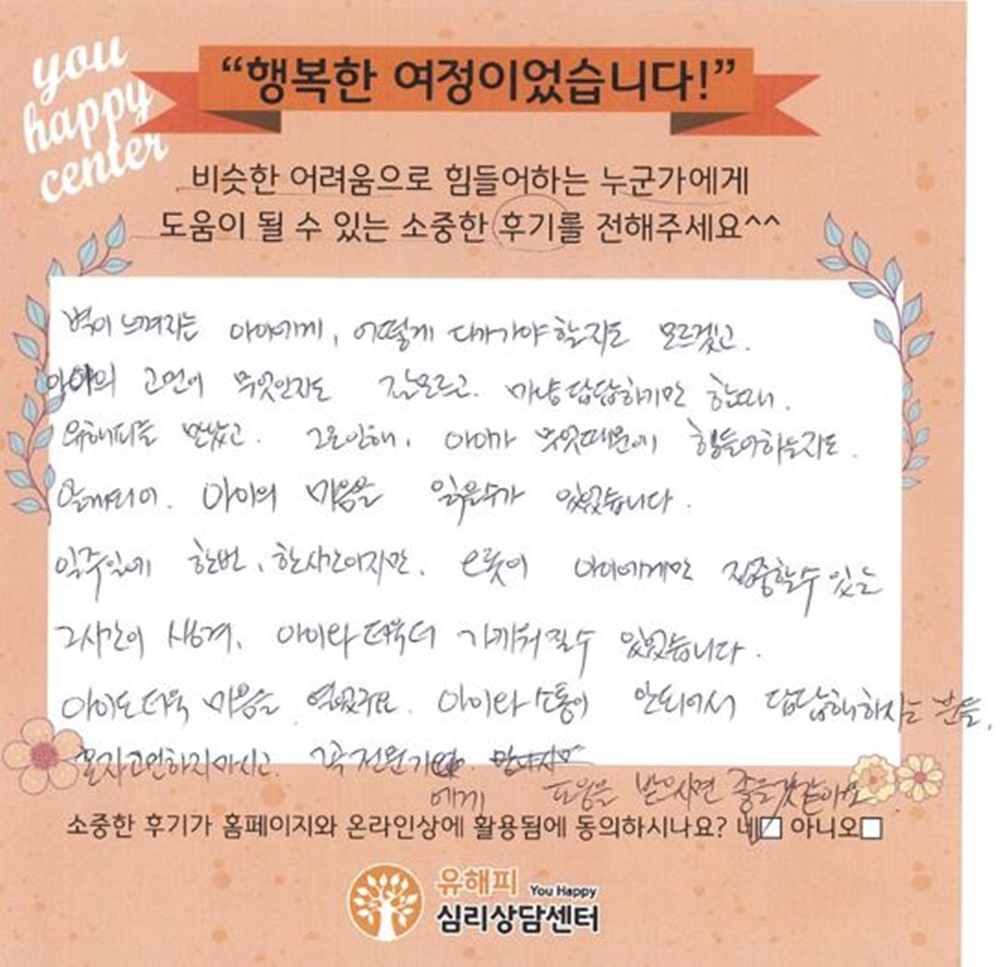 you
happy
center
“행복한 여정이었습니다!”
비슷한 어려움으로 힘들어하는 누군가에게
도움이 될 수 있는 소중한 후기를 전해주세요^^
벽이 느껴지는 아이에게, 어떻게 다가가야 할지도 모르겠고.
아이의 고민이 무엇인지도 잘모르고. 마냥 답답하기만 한때.
유해피를 만났고. 그로인해, 아이가 무엇때문에 힘들어하는지도.
알게되어. 아이의 마음을 읽을수가 있었습니다.
일주일에 한번, 한시간이지만. 오롯이 아이에게만 집중할수 있는
그시간이 생겨, 아이와 더욱더 가까워질수 있었습니다.
아이도 더욱 마음을 열었구요. 아이와 소통이 안되어서 답답해하시는 분들.
혼자고민하지마시고. 꼭 전문가
에게 도움을 받으시면 좋을것같아요
소중한 후기가 홈페이지와 온라인상에 활용됨에 동의하시나요? 네☑ 아니오□
유해피 You Happy
심리상담센터